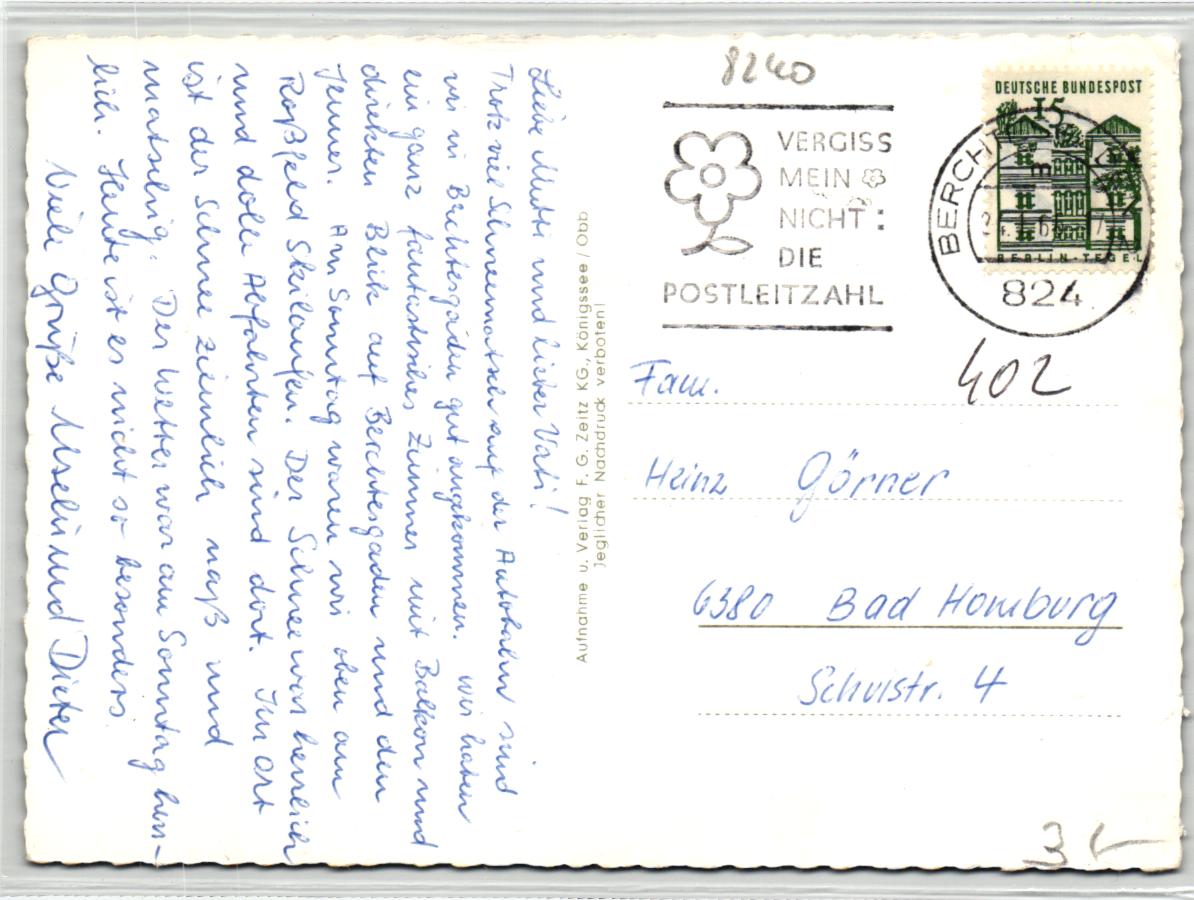 Liebe Mutti und lieber Vati!
Trotz viel Schneematsch auf der Autobahn sind
wir in Berchtesgaden gut angekommen. Wir haben
ein ganz fantastisches Zimmer mit Balkon und
direkten Blick auf Berchtesgaden und den
Jenner. Am Sonntag waren wir oben am
Roßfeld Skilaufen. Der Schnee war herrlich
und dolle Abfahrten sind dort. Im Ort
ist der Schnee ziemlich naß und
matschig. Das Wetter war am Sonntag herr-
lich. Heute ist es nicht so besonders.
Viele Grüße Usel und Dieter
Aufnahme u. Verlag F. G. Zeitz KG., Königssee / Obb
Jeglicher Nachdruck verboten!
8240
VERGISS
MEIN
NICHT:
DIE
POSTLEITZAHL
DEUTSCHE BUNDESPOST
15
BERLIN-TEGEL
824
402
Fam.
Heinz Görner
6380 Bad Homburg
Schulstr. 4
3